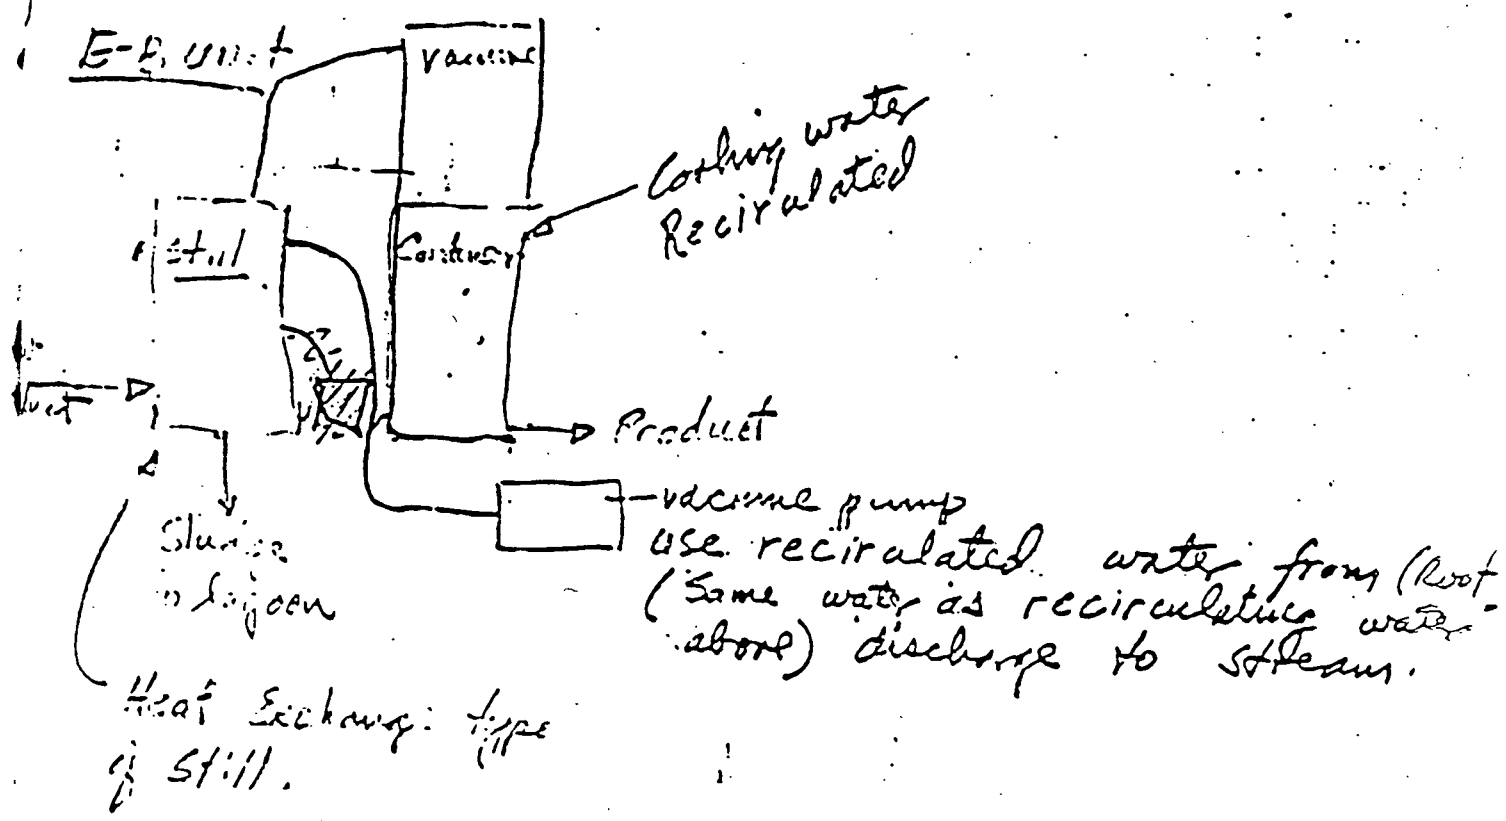 E-B unit
vacume
Cooling water
Recirulated
still
Product
vacume pump
use recirulated water from (Root
(Same water as recirculating water
above) discharge to stream.
Sludge
lagoon
Heat Exchange type
of Still.